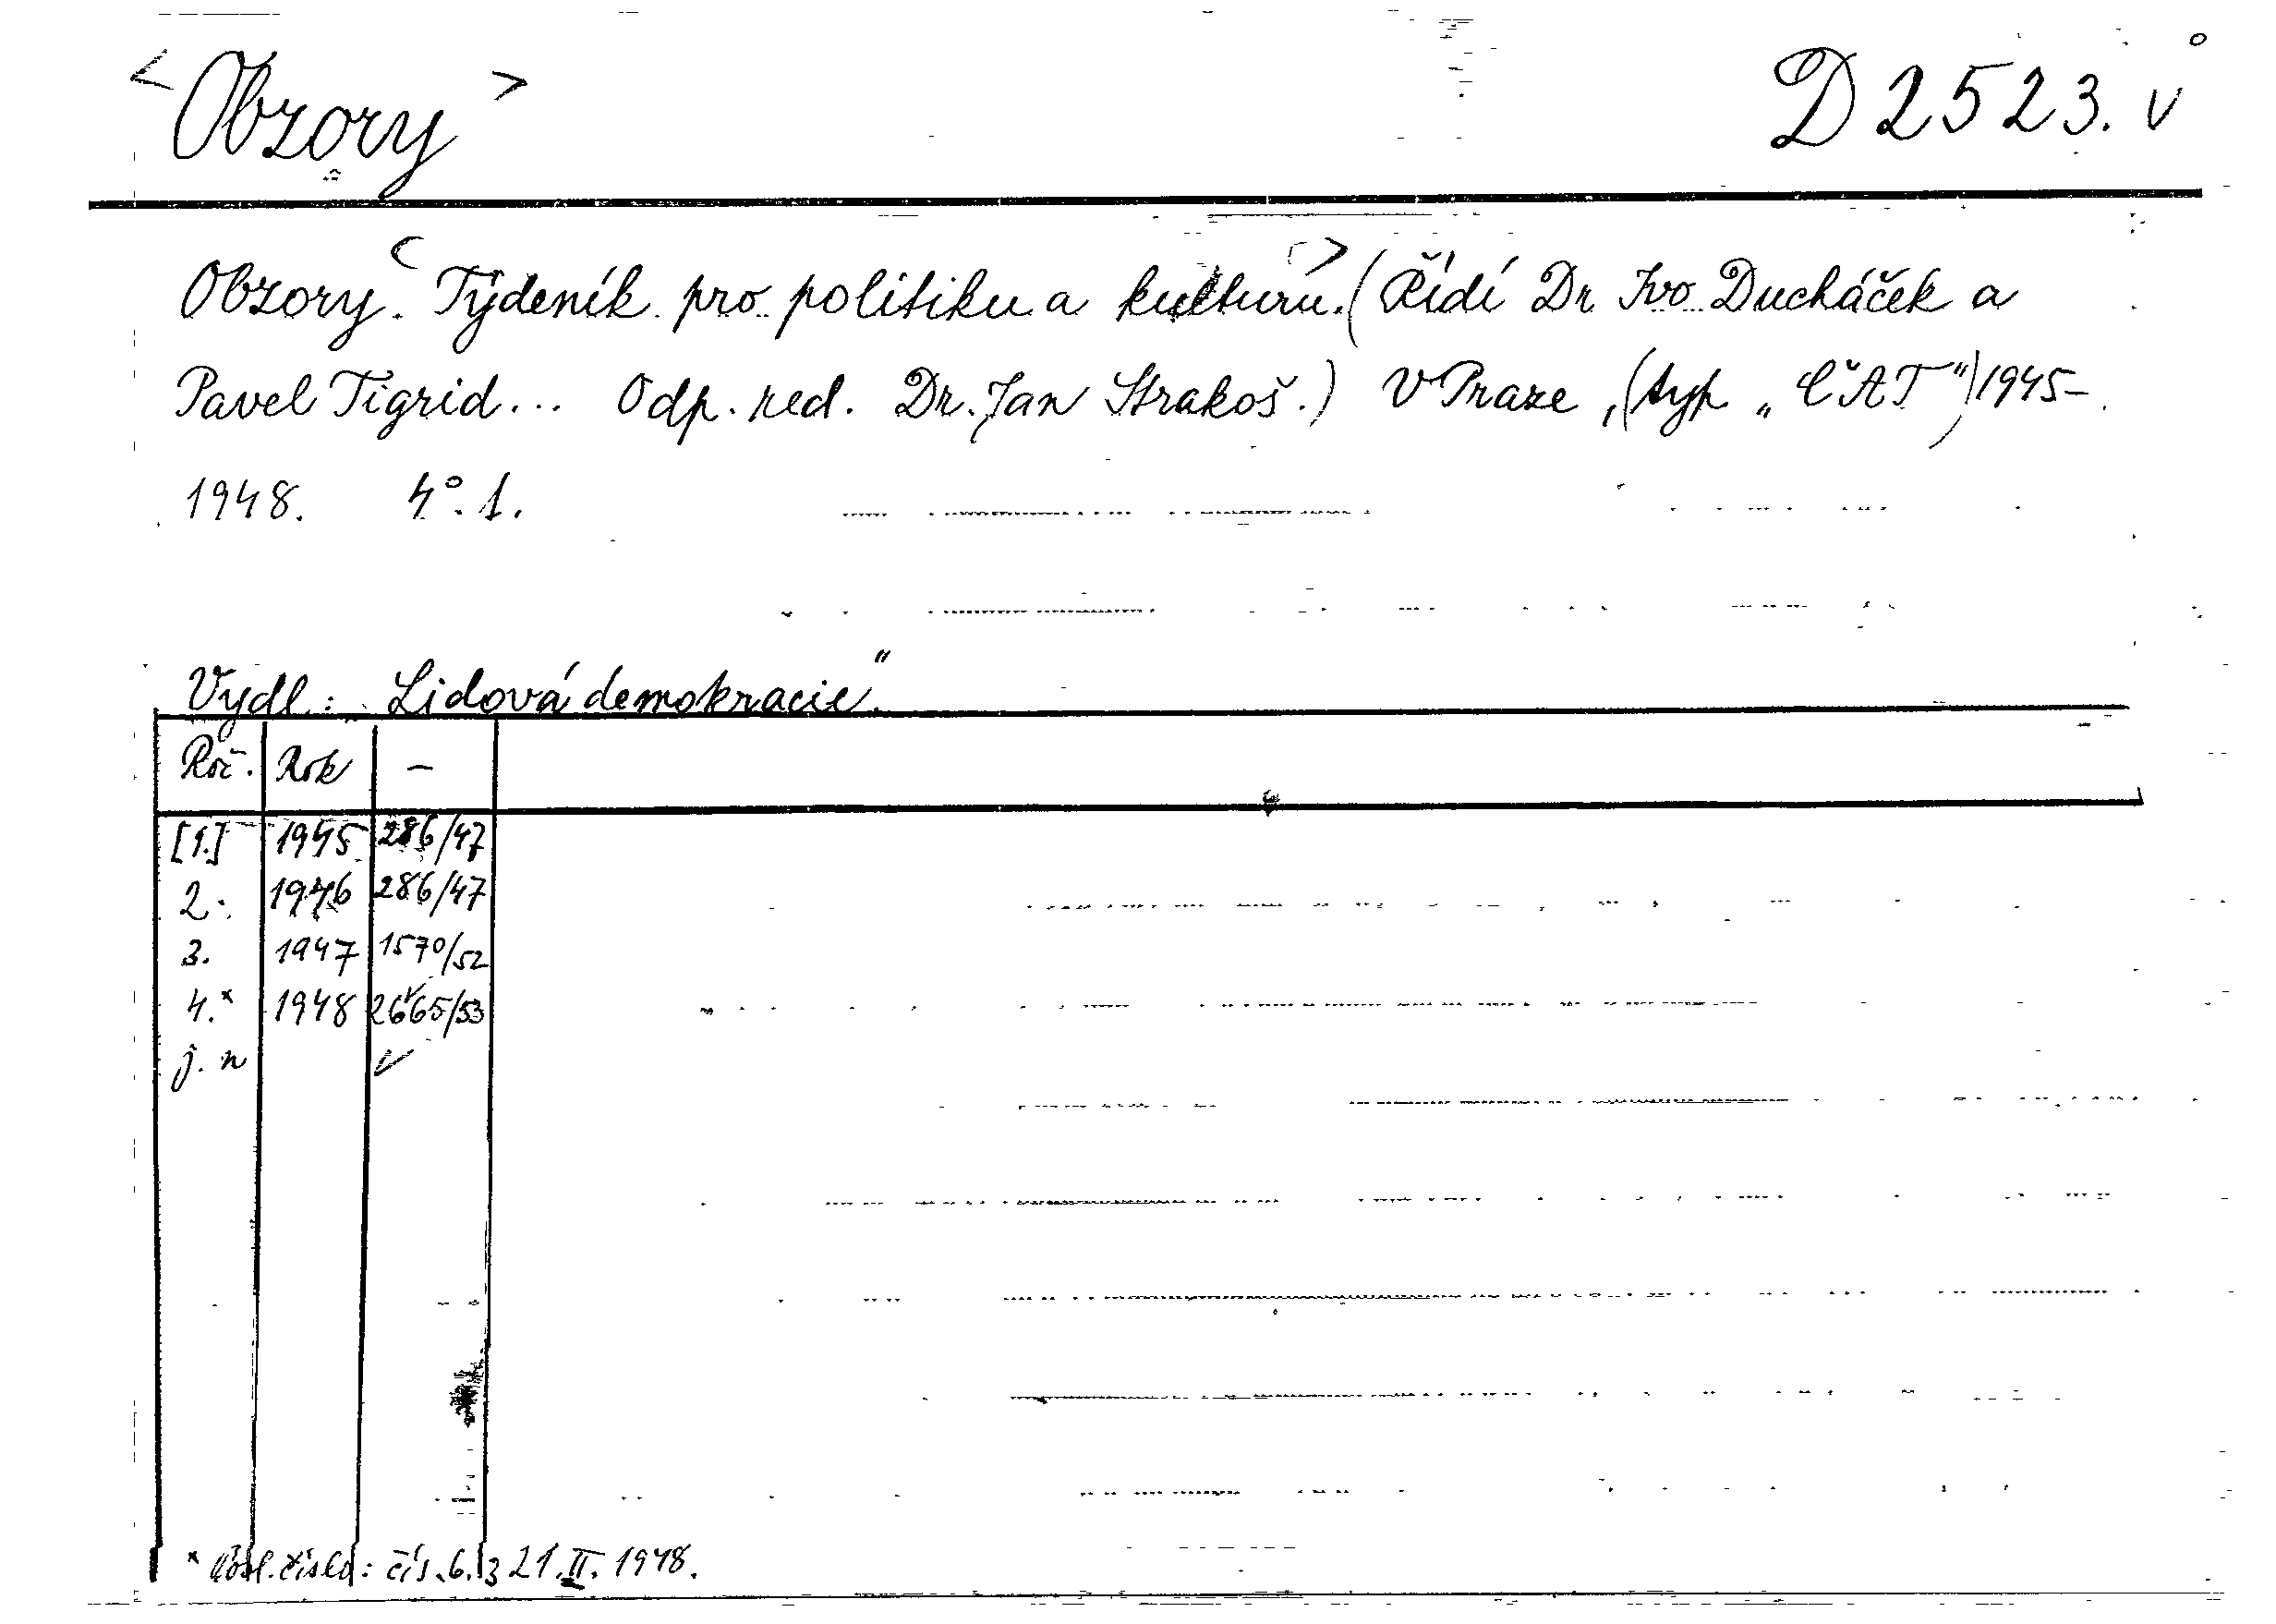 <Obzory> D 2523. v
Obzory. <Týdeník pro politiku a kulturu.> (Řídí Dr Ivo Ducháček a
Pavel Tigrid... Odp. red. Dr. Jan Strakoš.) V Praze, (typ „ČAT“) 1945–
1948. 4°. 1.
Vydl: Lidová demokracie“
Roč. Rok –
[1.] 1945 286/47
2. 1946 286/47
3. 1947 1570/52
4.x 1948 2665/53
j. n
x Posl. číslo: čís. 6. z 21. II. 1948.